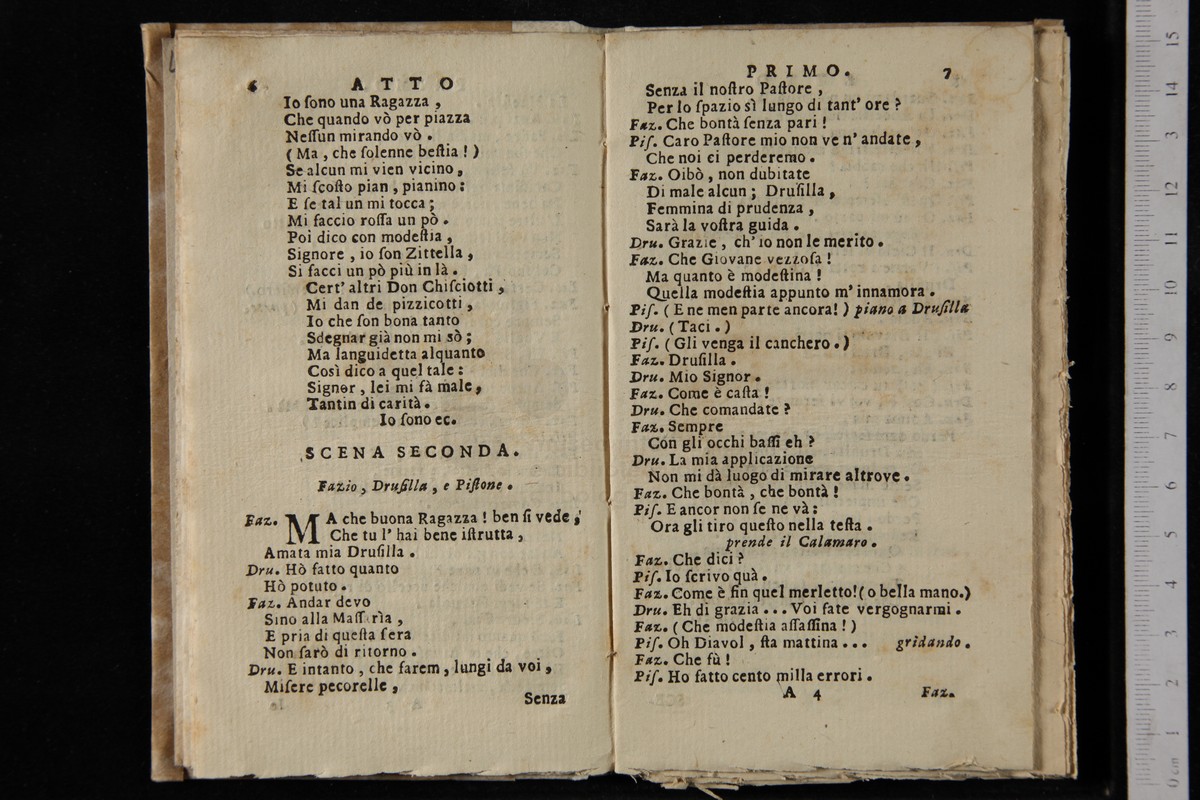 6 ATTO
Io ſono una Ragazza ,
Che quando vò per piazza
Neſſun mirando vò .
( Ma , che ſolenne beſtia ! )
Se alcun mi vien vicino ,
Mi ſcoſto pian , pianino :
E ſe tal un mi tocca ;
Mi faccio roſſa un pò .
Poi dico con modeſtia ,
Signore , io ſon Zittella ,
Si facci un pò più in là .
Cert' altri Don Chiſciotti ,
Mi dan de pizzicotti ,
Io che ſon bona tanto
Sdegnar già non mi sò ;
Ma languidetta alquanto
Così dico a quel tale :
Signor , lei mi fà male ,
Tantin di carità .
Io ſono ec.
SCENA SECONDA.
Fazio , Druſilla , e Piſtone .
Faz. MA che buona Ragazza ! ben ſi vede ,
Che tu l' hai bene iſtrutta ,
Amata mia Druſilla .
Dru. Hò fatto quanto
Hò potuto .
Faz. Andar devo
Sino alla Maſſerìa ,
E pria di queſta ſera
Non ſarò di ritorno .
Dru. E intanto , che farem , lungi da voi ,
Miſere pecorelle ,
Senza
PRIMO. 7
Senza il noſtro Paſtore ,
Per lo ſpazio sì lungo di tant' ore ?
Faz. Che bontà ſenza pari !
Piſ. Caro Paſtore mio non ve n' andate ,
Che noi ci perderemo .
Faz. Oibò , non dubitate
Di male alcun ; Druſilla ,
Femmina di prudenza ,
Sarà la voſtra guida .
Dru. Grazie , ch' io non le merito .
Faz. Che Giovane vezzoſa !
Ma quanto è modeſtina !
Quella modeſtia appunto m' innamora .
Piſ. ( E ne men parte ancora! ) piano a Druſilla
Dru. ( Taci . )
Piſ. ( Gli venga il canchero . )
Faz. Druſilla .
Dru. Mio Signor .
Faz. Come è caſta !
Dru. Che comandate ?
Faz. Sempre
Con gli occhi baſſi eh ?
Dru. La mia applicazione
Non mi dà luogo di mirare altrove .
Faz. Che bontà , che bontà !
Piſ. E ancor non ſe ne và :
Ora gli tiro queſto nella teſta .
prende il Calamaro .
Faz. Che dici ?
Piſ. Io ſcrivo quà .
Faz. Come è fin quel merletto! ( o bella mano.)
Dru. Eh di grazia ... Voi fate vergognarmi .
Faz. ( Che modeſtia aſſaſſina ! )
Piſ. Oh Diavol , ſta mattina ... gridando .
Faz. Che fù !
Piſ. Ho fatto cento milla errori .
A 4 Faz.
0 cm 1 2 3 4 5 6 7 8 9 10 11 12 13 14 15